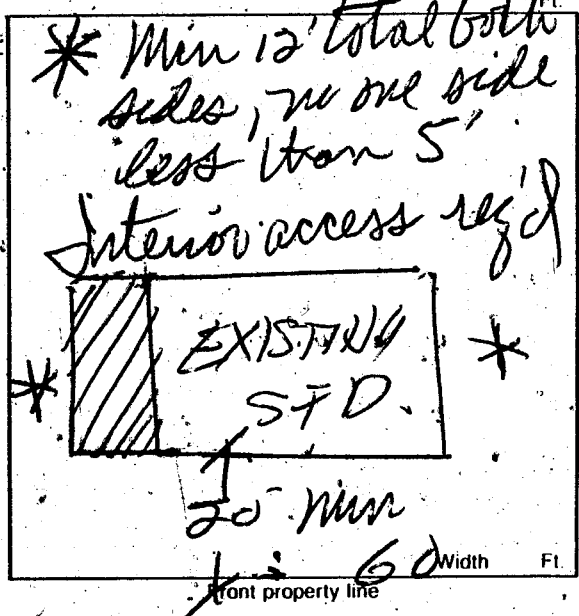 * Min 12' total both
sides, no one side
less than 5'
Interior access req'd
EXISTING
* SFD. *
20 min
60 Width Ft.
Front property line